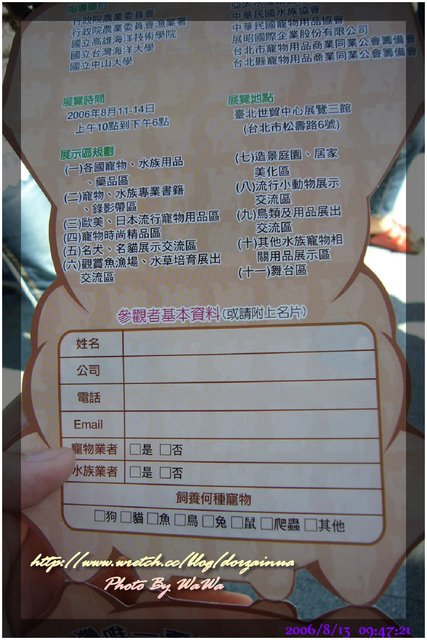 指導單位
行政院農業委員會
行政院農業委員會漁業署
國立高雄海洋技術學院
國立台灣海洋大學
國立中山大學
中華民國水族協會
中華民國寵物用品協會
展昭國際企業股份有限公司
台北市寵物用品商業同業公會籌備會
台北縣寵物用品商業同業公會籌備會
展覽時間
2006年8月11-14日
上午10點到下午6點
展覽地點
臺北世貿中心展覽三館
(台北市松壽路6號)
展示區規劃
(一)各國寵物、水族用品
、藥品區
(二)寵物、水族專業書籍
、錄影帶區
(三)歐美、日本流行寵物用品區
(四)寵物時尚精品區
(五)名犬、名貓展示交流區
(六)觀賞魚漁場、水草培育展出
交流區
(七)造景庭園、居家
美化區
(八)流行小動物展示
交流區
(九)鳥類及用品展出
交流區
(十)其他水族寵物相
關用品展示區
(十一)舞台區
參觀者基本資料(或請附上名片)
姓名
公司
電話
Email
寵物業者 □是 □否
水族業者 □是 □否
飼養何種寵物
□狗□貓□魚□鳥□兔□鼠□爬蟲□其他
http://www.wretch.cc/blog/dorzainua
Photo By WaWa
2006/8/13 09:47:21